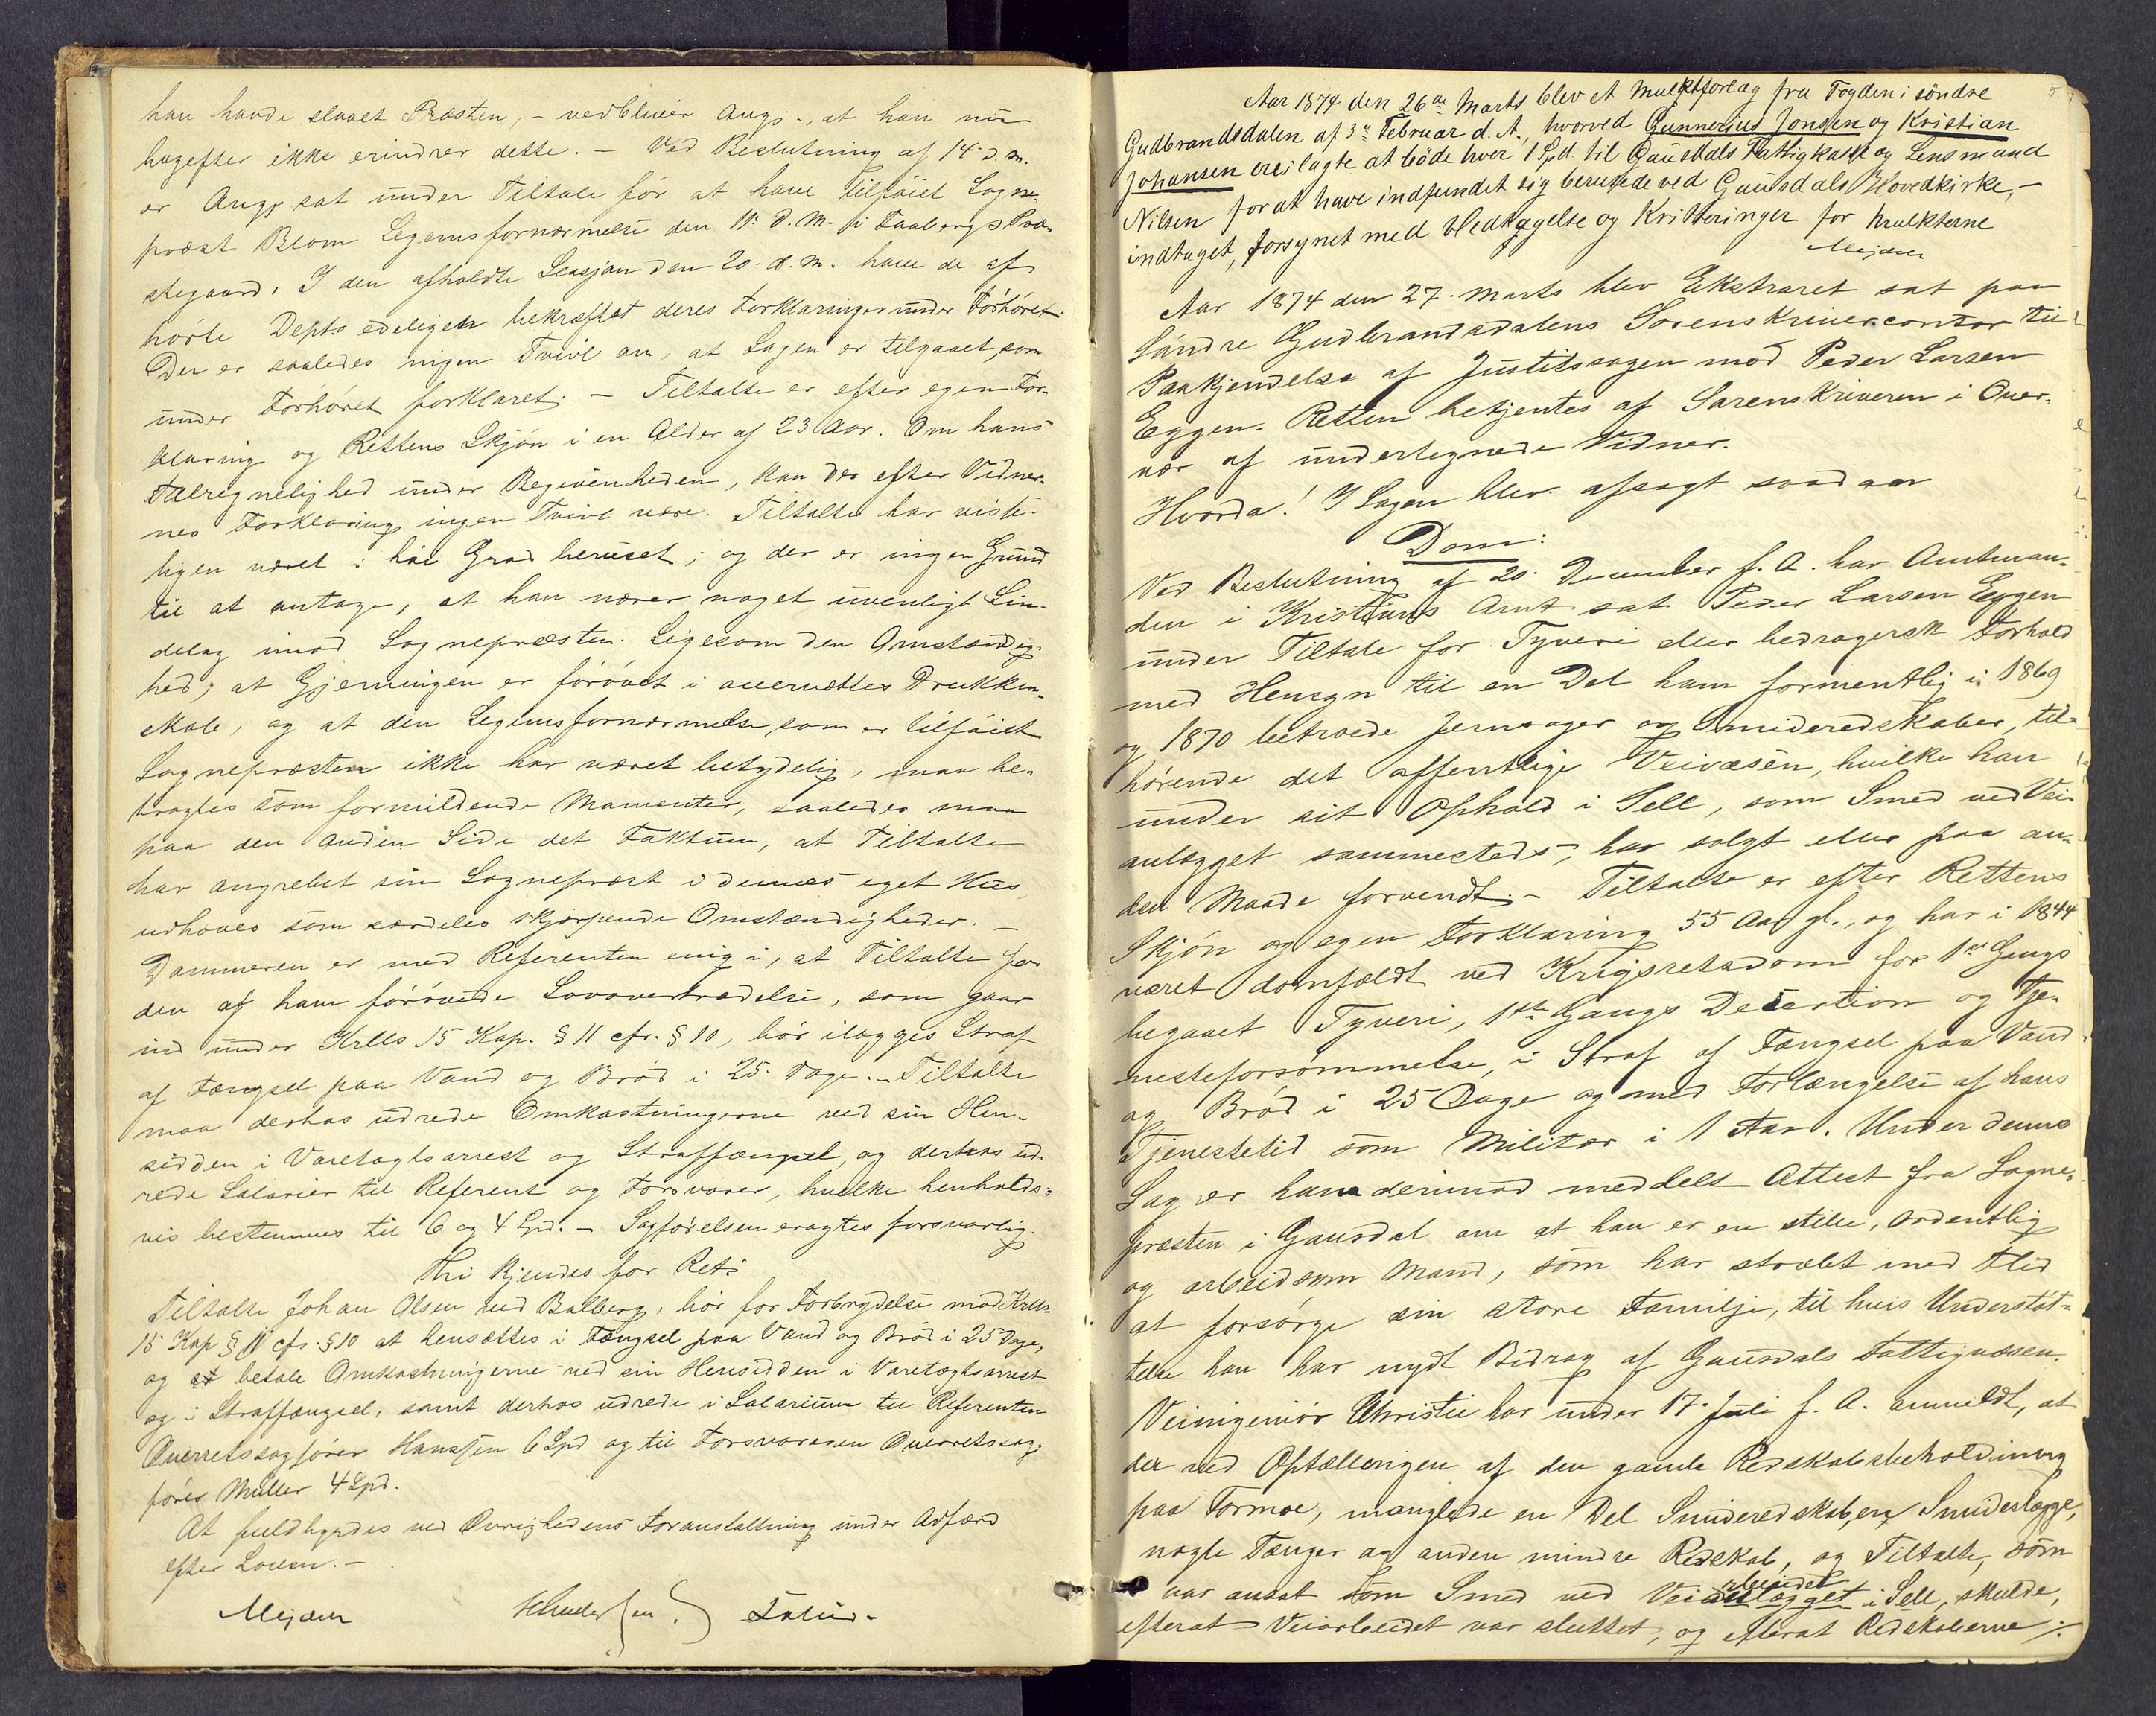 han havde slaaet Præsten, - vedbliver Angj., at han nu
bagefter ikke erindrer dette. - Ved Beslutning af 14 d. M.
er Angj. sat under Tiltale for at have tilføiet Sogne-
præst Blom Legemsfornærmelse den 11 d. M. på Faabergs Præ-
stegaard. I den afholdte Sessjon den 20. d. M. have de af-
hørte Depts edeligen bekræftet deres Forklaringer under Forhøret.
Der er saaledes ingen Tvivl om, at Sagen er tilgaaet, som
under Forhøret forklaret. - Tiltalte er efter egen For-
klaring og Rettens Skjøn i en Alder af 23 Aar. Om hans
Tilregnelighed under Begivenheden, kan der efter Vidner-
nes Forklaring ingen Tvivl være. Tiltalte har viste-
ligen været i høi Grad beruset; og der er ingen Grund
til at antage, at han nærer noget uvenligt Sin-
delag imod Sognepræsten. Ligesom den Omstændig-
hed, at Gjerningen er forøvet i overvættes Drukken-
skab, og at den Legemsfornærmelse, som er tilføiet
Sognepræsten ikke har været betydelig, maa be-
tragtes som formildende Momenter, saaledes maa
paa den anden Side det Faktum, at Tiltalte
har angrebet sin Sognepræst i dennes eget Hus,
udhæves som særdeles skjærpende Omstændigheder. -
Dommeren er med Referenten enig i, at Tiltalte for
den af ham forøvede Lovovertrædelse, som gaar
ind under Krlls 15 Kap. § 11 cfr. § 10, bør ilægges Straf
af Fængsel paa Vand og Brød i 25 Dage. - Tiltalte
maa derhos udrede Omkostningerne ved sin Hen-
sidden i Varetægtsarrest og Straffængsel, og derhos ud-
rede Salarier til Referent og Forsvarer, hvilke henholds-
vis bestemmes til 6 og 4 Spd. - Sagførelsen eragtes forsvarlig.
Thi kjendes for Ret:
Tiltalte Johan Olsen ved Balberg, bør for Forbrydelse mod Krlls
15 Kap § 11 cfr. § 10 at hensættes i Fængsel paa Vand og Brød i 25 Dage,
og at betale Omkostningerne ved sin Hensidden i Varetægtsarrest
og i Straffængsel, samt derhos udrede i Salarium til Referenten
Overretssagfører Hanssen 6 Spd og til Forsvareren Overretssag-
fører Müller 4 Spd.
At fuldbyrdes ved Øvrighedens Foranstaltning under Adfærd
efter Loven. -
Mejdell
5
Aar 1874 den 26de Marts blev et Mulktforlæg fra Fogden i söndre
Gudbrandsdalen af 3die Februar d. A., hvorved Gunnerius Jonsen og Kristian
Johansen ere ilagte at böde hver 1 Spd. til Gausdals Fattigkasse og Lensmand
Nilsen for at have indfundet sig berusede ved Gausdals Hovedkirke, -
indtaget, forsynet med Vedtagelse og Kvitteringer for Mulkterne
Mejdell
Aar 1874 den 27. Marts blev Ekstraret sat paa
Søndre Gudbrandsdalens Sorenskrivercontor til
Paakjendelse af Justitssagen mod Peder Larsen
Eggen. Retten betjentes af Sorenskriveren i Over-
vær af undertegnede Vidner.
Hvorda! I Sagen blev afsagt saadan
Dom:
Ved Beslutning af 20. December f. A. har Amtman-
den i Kristians Amt sat Peder Larsen Eggen
under Tiltale for Tyveri eller bedragersk Forhold
med Hensyn til en Del ham formentlig i 1869
og 1870 betroede Jernsager og Smideredskaber, til-
hørende det offentlige Veivæsen, hvilke han
under sit Ophold i Sell, som Smed ved Vei-
anlægget sammesteds, har solgt eller paa an-
den Maade forvendt. - Tiltalte er efter Rettens
Skjøn og egen Forklaring 55 Aar gl., og har i 1844
været domfældt ved Krigsretsdom for 1ste Gangs
begaaet Tyveri, 1ste Gangs Desertion og Tje-
nesteforsømmelse, i Straf af Fængsel paa Vand
og Brød i 25 Dage og med Forlængelse af hans
Tjenestetid som Militær i 1 Aar. Under denne
Sag er ham derimod meddelt Attest fra Sogne-
præsten i Gausdal om at han er en stille, ordentlig
og arbeidsom Mand, som har stræbt med Flid
at forsørge sin store Familje, til hvis Understøt-
telse han har nydt Bidrag af Gausdals Fattigvæsen.
Veiingeniør Christie har under 17. Juli f. A. anmeldt, at
der ved Optællingen af den gamle Redskabsbeholdning
paa Formoe, manglede en Del Smideredskaber, Smideslægge,
nogle Tænger og anden mindre Redskab, og Tiltalte, som
var ansat som Smed ved Veianlægget arbeidet i Sell, skulde,
efterat Veiarbeidet var sluttet, og efterat Redskaberne /.